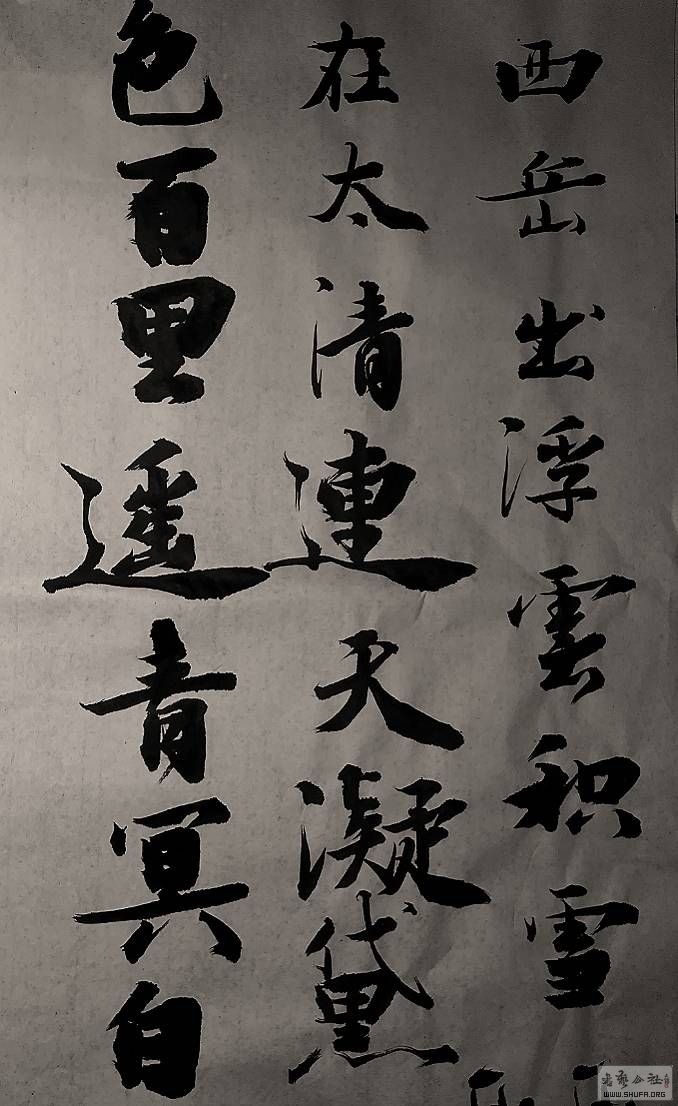 西岳出浮雲积雪
在太清連天凝黛
色百里遥青冥自
WWW.SHUFA.ORG